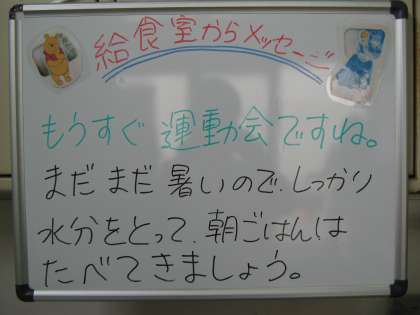 給食室からメッセージ
もうすぐ運動会ですね。
まだまだ暑いので、しっかり
水分をとって、朝ごはんは
たべてきましょう。